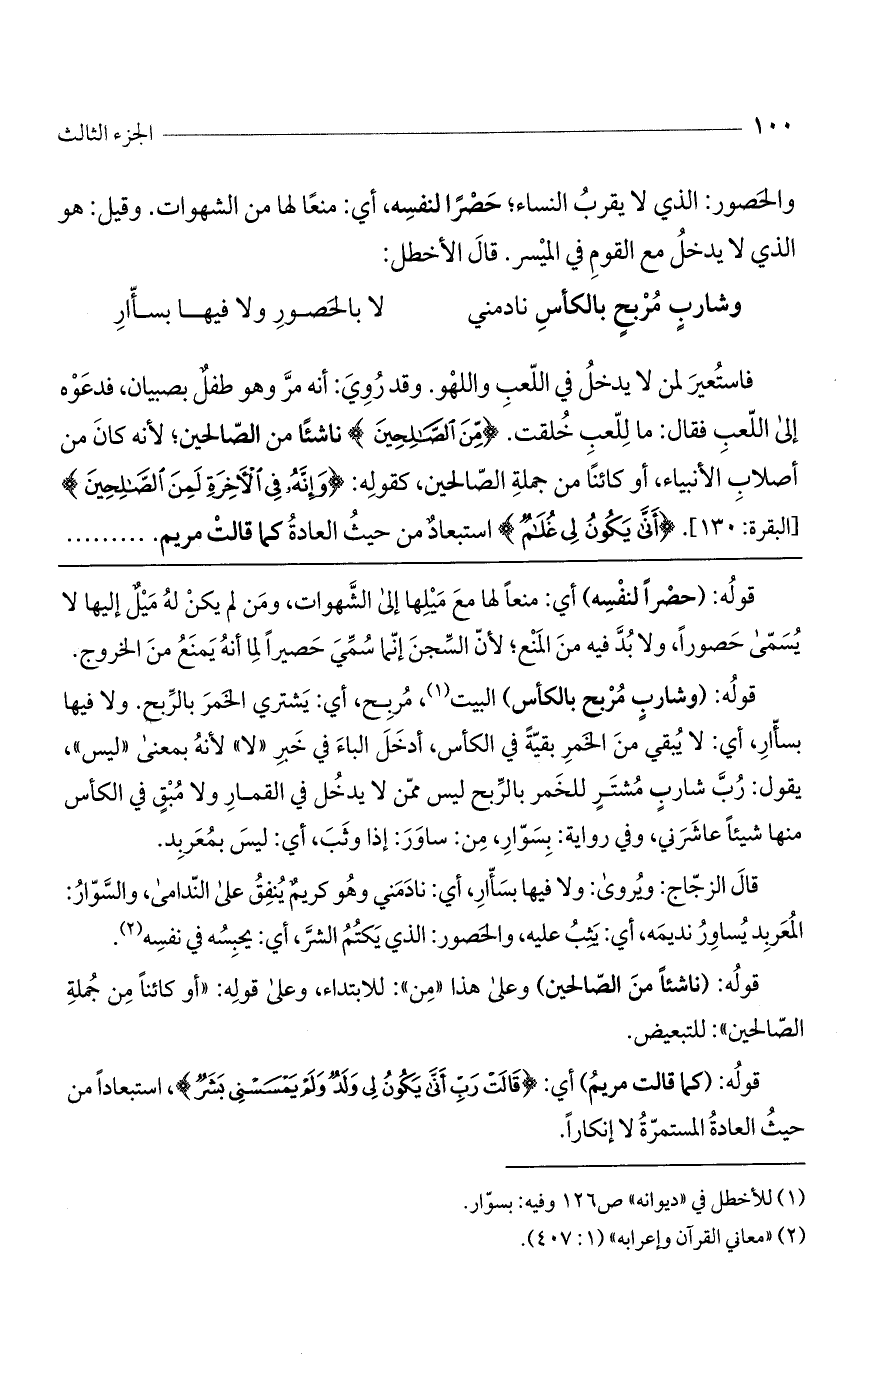 ١٠٠ الجزء الثالث
والحَصور: الذي لا يقربُ النساء؛ حَصْرًا لنفسِه، أي: منعًا لها من الشهوات. وقيل: هو
الذي لا يدخلُ مع القومِ في الميْسر. قالَ الأخطل:
وشاربٍ مُرْبحٍ بالكأسِ نادمني لا بالحَصورِ ولا فيها بسأّارِ
فاستُعيرَ لمن لا يدخلُ في اللّعبِ واللهْو. وقد رُوِيَ: أنه مرَّ وهو طفلٌ بصبيان، فدعَوْه
إلىٰ اللّعبِ فقال: ما لِلّعبِ خُلقت. ﴿مِّنَ ٱلصَّـٰلِحِينَ﴾ ناشئًا من الصّالحين؛ لأنه كانَ من
أصلابِ الأنبياء، أو كائنًا من جملةِ الصّالحين، كقولِه: ﴿وَإِنَّهُۥ فِى ٱلْـَٔاخِرَةِ لَمِنَ ٱلصَّـٰلِحِينَ﴾
[البقرة: ١٣٠]. ﴿أَنَّىٰ يَكُونُ لِى غُلَـٰمٌ﴾ استبعادٌ من حيثُ العادةُ كما قالتْ مريم. .........
قولُه: (حصْراً لنفْسِه) أي: منعاً لها معَ مَيْلِها إلىٰ الشَّهوات، ومَن لم يكنْ لهُ مَيْلٌ إليها لا
يُسَمّىٰ حَصوراً، ولا بُدَّ فيه منَ المَنْع؛ لأنّ السِّجنَ إنّما سُمِّيَ حَصيراً لِما أنهُ يَمنَعُ منَ الخروج.
قولُه: (وشاربٍ مُرْبحٍ بالكأس) البيت(١)، مُربِح، أي: يَشتري الخَمرَ بالرِّبح. ولا فيها
بسأّارِ، أي: لا يُبقي منَ الخَمرِ بقيّةً في الكأس، أدخَلَ الباءَ في خَبرِ «لا» لأنهُ بمعنىٰ «ليس»،
يقول: رُبَّ شاربٍ مُشتَرٍ للخَمر بالرِّبح ليس ممّن لا يدخُل في القمارِ ولا مُبْقٍ في الكأس
منها شيئاً عاشَرَني، وفي رواية: بِسَوّارِ، مِن: ساوَرَ: إذا وثَبَ، أي: ليسَ بمُعَربِد.
قالَ الزجّاج: ويُروىٰ: ولا فيها بسَأّارِ، أي: نادَمَني وهُو كريمٌ يُنفِقُ علىٰ النّدامىٰ، والسَّوّارُ:
المُعَربِد يُساوِرُ نديمَه، أي: يَثِبُ عليه، والحَصور: الذي يَكتُمُ الشرَّ، أي: يحبِسُه في نفسِه(٢).
قولُه: (ناشئاً منَ الصّالحين) وعلىٰ هذا «مِن»: للابتداء، وعلىٰ قولِه: «أو كائناً مِن جُملةِ
الصّالحين»: للتبعيض.
قولُه: (كما قالت مريمُ) أي: ﴿قَالَتْ رَبِّ أَنَّىٰ يَكُونُ لِى وَلَدٌ وَلَمْ يَمْسَسْنِى بَشَرٌ﴾، استبعاداً من
حيثُ العادةُ المستمرّةُ لا إنكاراً.
(١) للأخطل في «ديوانه» ص١٢٦ وفيه: بسوّار.
(٢) «معاني القرآن وإعرابه» (١: ٤٠٧).